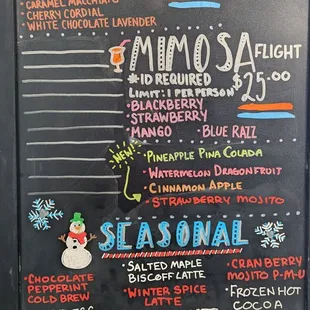 CARAMEL MACCHIATO
• CHERRY CORDIAL
• WHITE CHOCOLATE LAVENDER
MIMOSA FLIGHT
#ID REQUIRED $25.00
LIMIT: 1 PER PERSON
• BLACKBERRY
• STRAWBERRY
• MANGO • BLUE RAZZ
NEW!
• PINEAPPLE PINA COLADA
• WATERMELON DRAGONFRUIT
• CINNAMON APPLE
• STRAWBERRY MOJITO
SEASONAL
• CHOCOLATE PEPPERINT COLD BREW
SALTED MAPLE BISCOFF LATTE
• WINTER SPICE LATTE
• CRANBERRY MOJITO P-M-U
• FROZEN HOT COCOA